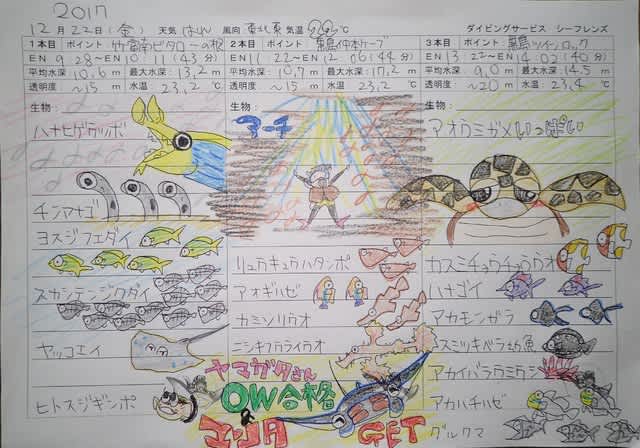 2017
12月22日(金) 天気 はれ 風向 東北東 気温 22℃ ダイビングサービス シーフレンズ
1本目 ポイント 竹富南ビタロ～の根
EN 9:28～EN 10:11(43分)
平均水深: 10.6m 最大水深: 13.2m
透明度 ~15m 水温 23.2℃
生物:
ハナヒゲウツボ
チンアナゴ
ヨスジフエダイ
スカシテンジクダイ
ヤッコエイ
ヒトスジギンポ
2本目 ポイント 黒島仲本ケーブ
EN 11:22～EN 12:06(44分)
平均水深: 10.7m 最大水深: 17.2m
透明度 ~15m 水温 23.2℃
生物:
アーチ
リュウキュウハタンポ
アオギハゼ
カミソリウオ
ニシキフウライウオ
ヤマガタさん
OW合格
&
マンタ GET
3本目 ポイント 黒島ツインロック
EN 13:22～EN 14:02(40分)
平均水深: 9.0m 最大水深: 14.5m
透明度 ~20m 水温 23.4℃
生物:
アオウミガメいっぱい
カスミチョウチョウウオ
ハナゴイ
アカモンガラ
クスミツキベラ幼魚
アカイバラウミウシ
アカハチハゼ
グルクマ